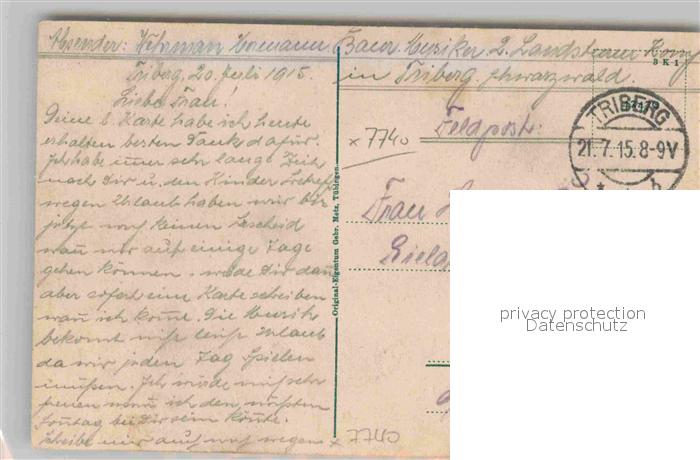 Absender: Wehrman Hermann Baur. Musiker. 2. Landsturm Komp
Triberg, 20. Juli 1915.
in Triberg, schwarzwald.
Liebe Frau!
Deine l. Karte habe ich heute
erhalten besten Dank dafür.
Ich habe imer sehr lange Zeit
nach Dir u. den Kinder betreff
wegen Urlaub haben wir bis
jetzt noch keinen Bescheid
wan wir auf einige Tage
gehen können. werde Dir dan
aber sofort eine Karte schreiben
wan ich kome. Die Musik
bekomt nicht leicht Urlaub
da wir jeden Tag spielen
müssen. Ich würde mich sehr
freuen wan ich den nächsten
Sontag bei Dir sein könte.
schreibe mir auch noch wegen
Original-Eigentum Gebr. Metz, Tübingen.
3 K 1
Feldpost:
x 7740
TRIBERG
21.7.15.8-9V
Frau
x 7740
privacy protection
Datenschutz